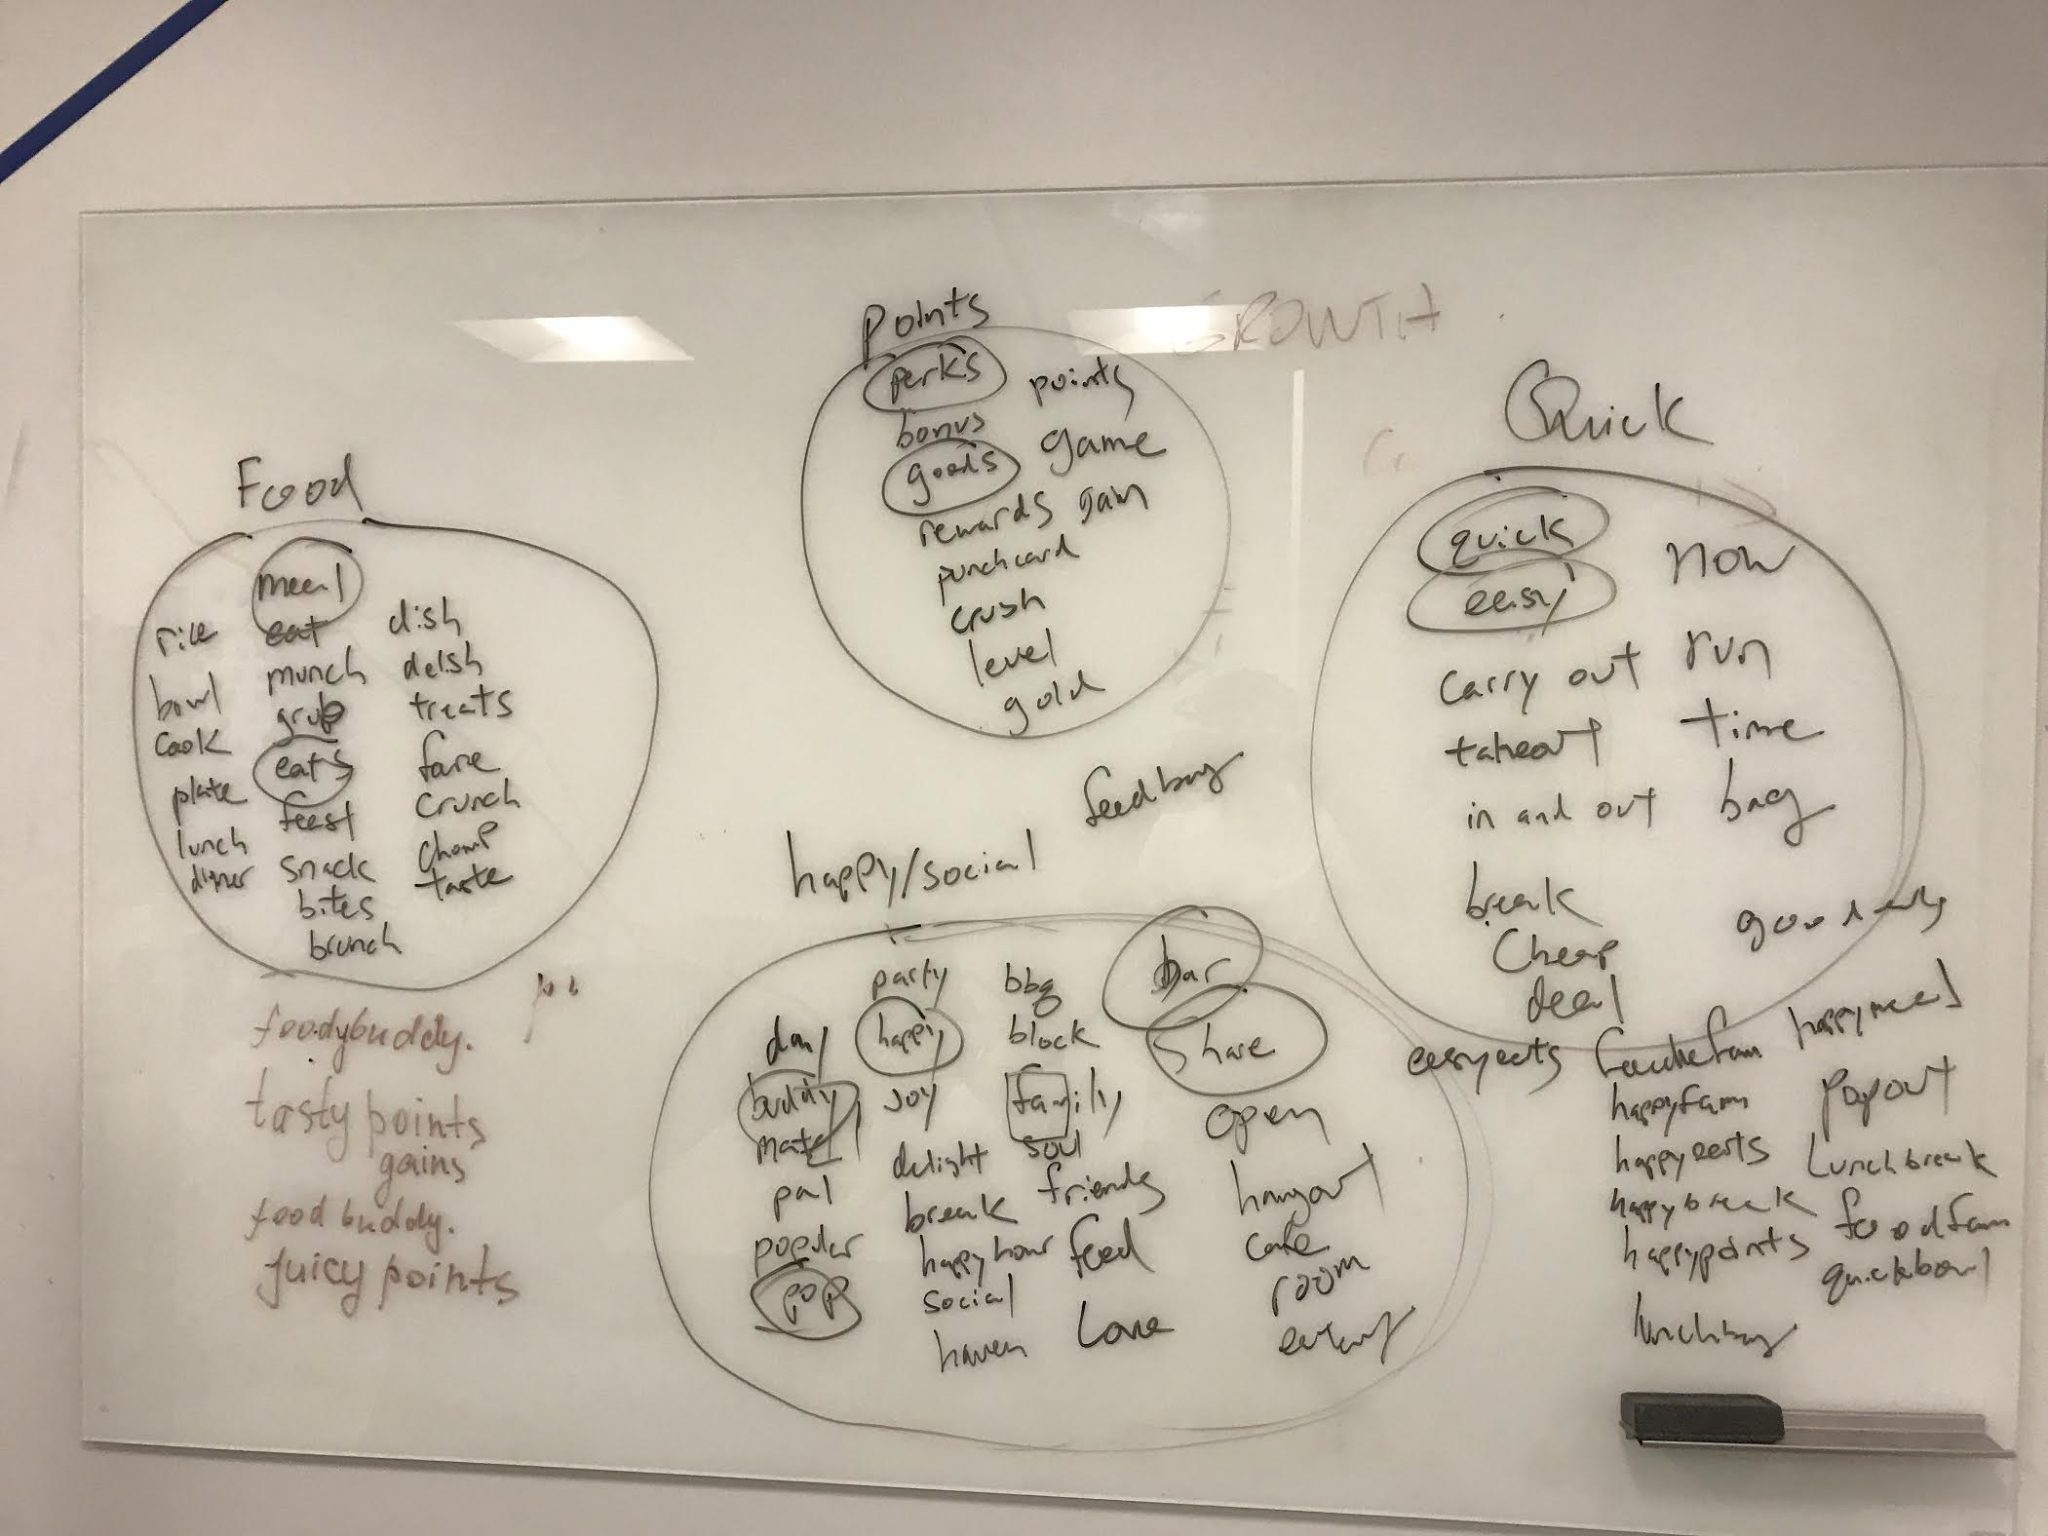 GROWTH
Points
perks points
bonus
goods game
rewards gain
punchcard
crush
level
gold
Food
meal
rice eat dish
munch delish
bowl grub treats
cook eats fare
plate feast crunch
lunch snack chomp
dinner bites taste
brunch
Quick
quick now
easy
carry out run
takeout time
in and out bag
break
cheap
deal
feedbag
happy/social
party bbq bar
day happy block share
buddy joy family open
mate delight soul
pal break friends hangout
popular happy hour feed cafe
pop social room
haven Love eatery
foodybuddy.
tasty points
gains
food buddy.
juicy points
easyeats happymeal
happyfam popout
happyeats Lunchbreak
happybreak foodfam
happypoints quickbowl
lunchbag